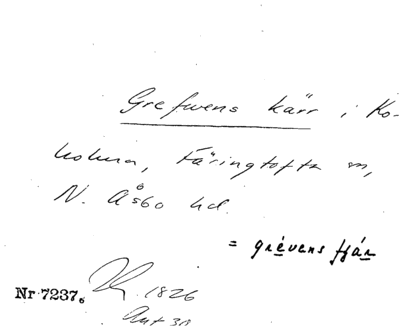 Grefwens kärr i Ko-
holma, Färingtofta sn,
N. Åsbo hd.
= grévens fjár
Nr 7237.
1826
Ant 3a